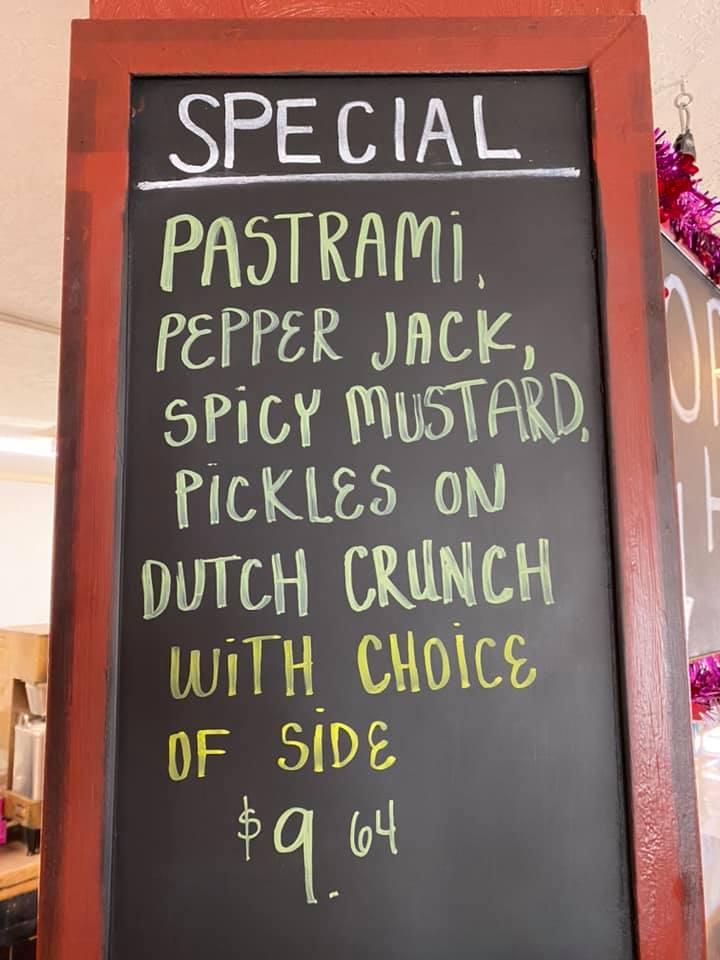 SPECIAL
PASTRAMi,
PEPPER JACK,
SPiCY MUSTARD,
PiCKLES ON
DUTCH CRUNCH
WiTH CHOiCE
OF SiDE
$9.64